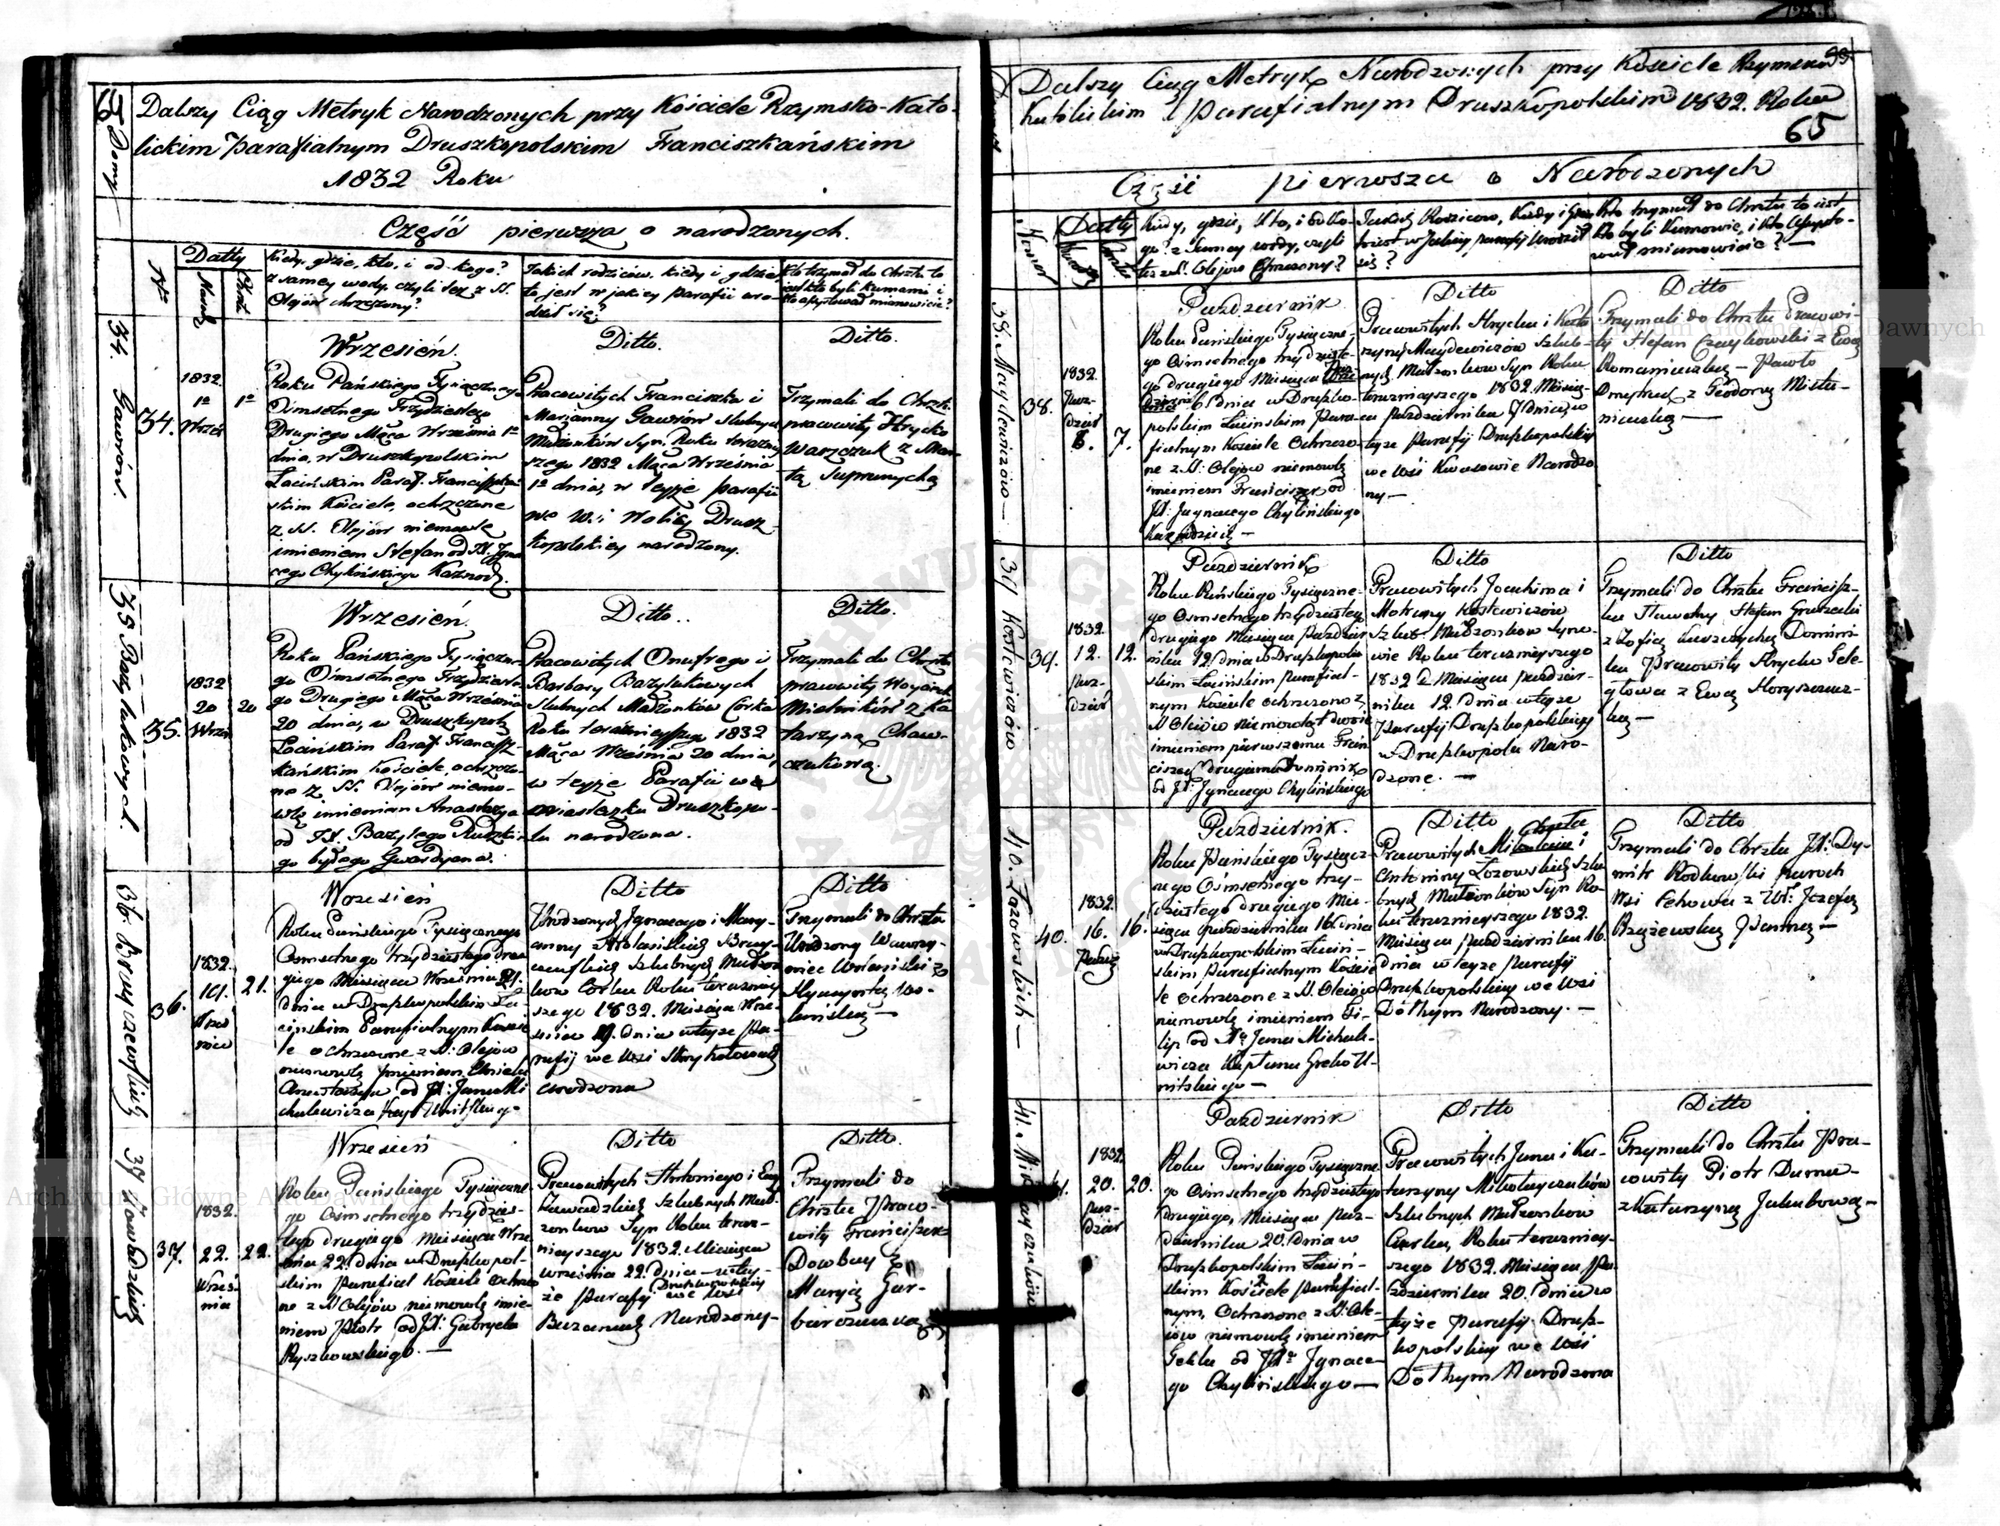 65
Domy
Dalszy Ciąg Metryk Narodzonych przy Kościele Rzymsko-Kato-
lickim Parafialnym Druszkopolskim Franciszkańskim
1832 Roku
Część pierwsza o narodzonych.
No
Datty
Narodz
Chrzt
Kiedy, gdzie, kto, i od kogo?
z samey wody, czyli też z SS.
Olejów chrzczony?
Jakich rodziców, kiedy i gdzie,
to jest w jakiey parafii uro-
dził się?
Kto trzymał do Chrztu to
jest kto byli Kumami i
kto assystował mianowicie?
34. Gawrów.
34.
1832.
1º
Wrześ
1º
Wrzesień.
Roku Pańskiego Tysiącznego
Ośmsetnego Trzydziestego
Drugiego Mąca Września 1º
dnia, w Druszkopolskim
Łacińskim Paraf. Franciszkań-
skim Kościele, ochrzczone
z SS. Olejów niemowle
imieniem Stefan od JX. Igna-
cego Chylińskiego Kaznod.
Ditto.
Pracowitych Franciszka i
Maryanny Gawrów slubnych
Małżonków Syn, Roku teraźniey-
szego 1832 Mąca Września
1º dnia, w teyże parafii
we Wsi Wolicy Drusz-
kopolskiey narodzony.
Ditto.
Trzymali do Chrztu
pracowity Hrycko
Warczuk z Mar-
tą Suprunychą
35 Bazylukowych.
35.
1832
20
Wrześ
20
Wrzesień.
Roku Pańskiego Tysiączne-
go Ośmsetnego Trzydzieste-
go Drugiego Mąca Września
20 dnia, w Druszkopol
Łacińskim Paraf. Francisz-
kańskim Kościele, ochrzczo-
ne z SS. Olejów niemo-
wlę imieniem Anastazya
od JX. Bazylego
go byłego Gwardyana.
Ditto.
Pracowitych Onufrego i
Barbary Bazylukowych
slubnych Małżonków Córka
Roku teraźnieyszego 1832
Mąca Września 20 dnia,
w teyże Parafii we
miasteczku Druszkopo-
lu narodzona.
Ditto.
Trzymali do Chrztu
pracowity Woyciech
Mielników z Ka-
tarzyną Chaw-
czukową.
36
36.
1832.
19.
Wrze-
śnia
21.
Wrzesień
Roku Pańskiego Tysiącznego
Ośmsetnego trzydziestego dru-
giego Miesiąca Września 21.
dnia w Druszkopolskim Ła-
cińskim Parafialnym Koście-
le ochrzczone z SS. Olejów
niemowlę imieniem
Anastazya od JX. Jana Mi
chalewicza
Ditto
Urodzonych Ignacego i Mary-
anny z
Szlubnych Małżon-
kow Córka Roku teraźniey-
szego 1832. Miesiąca Wrze-
śnia 19. dnia w teyże Pa-
rafij we Wsi
urodzona
Ditto
Trzymali do Chrztu
Urodzony Wawrzy-
niec
37 Zawadzkich
37.
1832.
22.
Wrześ-
nia
22.
Wrzesień
Roku Pańskiego Tysiączne
go Ośmsetnego trzydzies-
tego drugiego Miesiąca Wrze
śnia 22. dnia w Druszkopol-
skim Parafial Kościele ochrzczo
ne z SS Olejów niemowlę imie-
niem Piotr od JX: Gabryela
Ryszkowskiego. —
Ditto
Pracowitych Antoniego i Ewy
Zawadzkich Szlubnych Mał-
żonkow Syn Roku teraz-
nieyszego 1832. Miesiąca
września 22. dnia w tey-
że Parafij Druszkopolskiey we Wsi
Narodzony-
Ditto.
Trzymali do
Chrztu Praco-
wity Franciszek
z
Maryią Gar-
barczukową
99
Dalszy Ciąg Metryk Narodzonych przy Kościele Rzymsko
Katolickim Parafialnym Druszkopolskim 1832. Roku
65
Część pierwsza o Narodzonych
Numer
Datty
Kiedy, gdzie, kto, i od ko-
go? z Samey wody, czyli
też z SS. Olejow Chrzczony?
Jakich Rodzicow, Kiedy i gdzie
to iest w Jakiey parafij Urodził
się?
Kto trzymał do Chrztu to iest
Kto byli Kumowie, i kto Assysto-
wał mianowicie? —
38. Maydewiczow —
38.
1832.
Paz-
dzier
6.
7.
Pazdziernik
Roku Pańskiego Tysiączne
go Ośmsetnego trzydzieste-
go drugiego Miesiąca
6 dnia w Druszko-
polskim Łacińskim Para-
fialnym Kościele Ochrzczo-
ne z SS: Olejow niemowlę
imieniem Franciszek od
JX: Jgnacego Chylińskiego
Kaznodzieii —
Ditto
Pracowitych Hrycka i Kata
rzyny Maydewiczow Szlub-
nych Małzonkow Syn Roku
teraznieyszego 1832 Miesią-
ca pazdziernika 7 dnia w
teyże Parafij Druszkopolskiey
we Wsi Kwasowie Narodzo
ny —
Ditto
Trzymali do Chrztu Pracowi-
ty Stefan Czaykowski z Ewą
Romaniukową — Pawło
Dmytruk z Teodorą
39 Kostewiczów
39.
1832.
12.
Paz-
dzier
12.
Pazdziernik
Roku Pańskiego Tysiączne-
go Ośmsetnego trzydziestego
drugiego miesiąca Pazdzier
nika 12. dnia w Druszkopol-
skim Łacińskim parafial-
nym Kościele ochrzczono z
SS Olejów niemowląt dwoie
imieniem pierwszemu Fran
ciszek drugiemu Dominik
od JX: Jgnacego Chylińskiego
Ditto
Pracowitych Joachima i
Matrony Kostewiczów
Szlub. Małżonkow Syno-
wie Roku teraznieyszego
1832 Miesiąca pazdzier-
nika 12. Dnia w teyże
Parafij Druszkopolskiey
w Druszkopolu Naro-
dzone. —
Ditto
Trzymali do Chrztu Francisz-
ka Stefan
z Zofią Domini-
ka Pracowity Hrycko
z Ewą
40. Łozowskich —
40.
1832.
16.
Pazdz
16.
Pazdziernik.
Roku Pańskiego Tysiącz-
nego Ośmsetnego trzy-
dziestego drugiego Mie-
siąca Pazdziernika 16. dnia
w Druszkopolskim Łaciń-
skim, Parafialnym Kościo
le ochrzczone z SS. Olejow
niemowlę imieniem Fi-
lip od Xa Jana Michale-
wicza Kapłana Greko U-
nitskiego —
Ditto
Pracowitych i
Antoniny Łozowskich Szlu-
bnych Małżonkow Syn Ro-
ku teraznieyszego 1832.
Miesiąca pazdziernika 16.
dnia w teyże Parafij
Druszkopolskiey we Wsi
Dołhym Narodzony. —
Ditto
Trzymali do Chrztu JX: Dy-
mitr Rodkowski Paroch
Wsi Cehowa z Wą Jozefą
Panną —
41. Mikołayczuków
41.
1832.
20.
paz-
dzier
20.
Pazdziernik
Roku Pańskiego Tysiączne
go Ośmsetnego trzydziestego
drugiego, Miesiąca paz-
dziernika 20. dnia w
Druszkopolskim Łaciń-
skim Kościele parafial-
nym, Ochrzczone z SS. Ole-
jow niemowlę imieniem
Tekla od JXa Jgnace-
go Chylińskiego —
Ditto
Pracowitych Jana i Ka-
tarzyny Mikołayczuków
Szlubnych Małzonkow
Curka, Roku terazniey-
szego 1832. Miesiąca Pa
zdziernika 20. dnia w
teyże Parafij Drusz-
kopolskiey we Wsi
Dołhym Narodzona
Ditto
Trzymali do Chrztu Pra-
cowity Piotr
z Katarzyną Jakubową —
Archiwum Główne Akt Dawnych